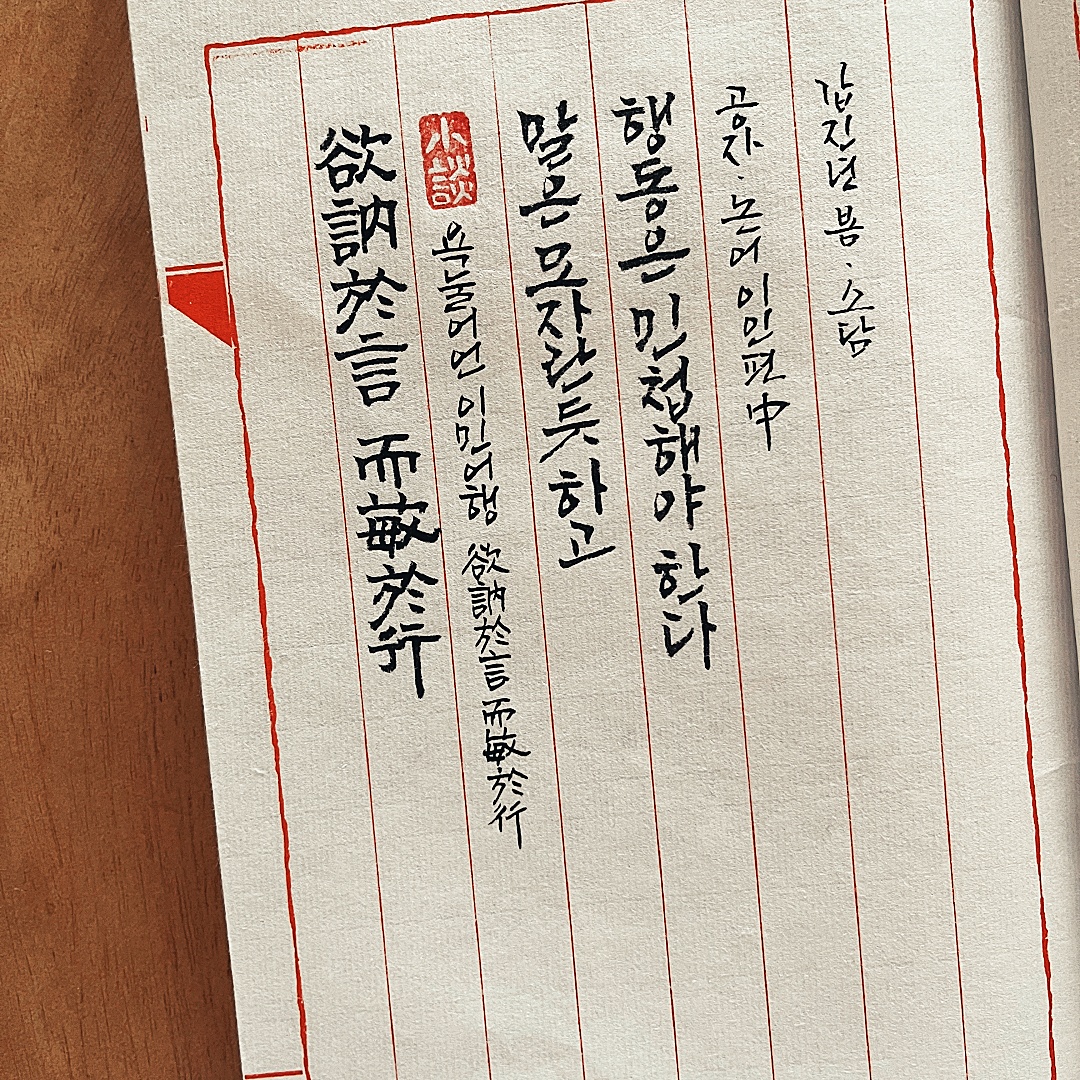 欲訥於言 而敏於行
小談
욕눌어언 이민어행 欲訥於言 而敏於行
말은 모자란듯 하고
행동은 민첩해야 한다
공자·논어 이인편 中
갑진년 봄·소담